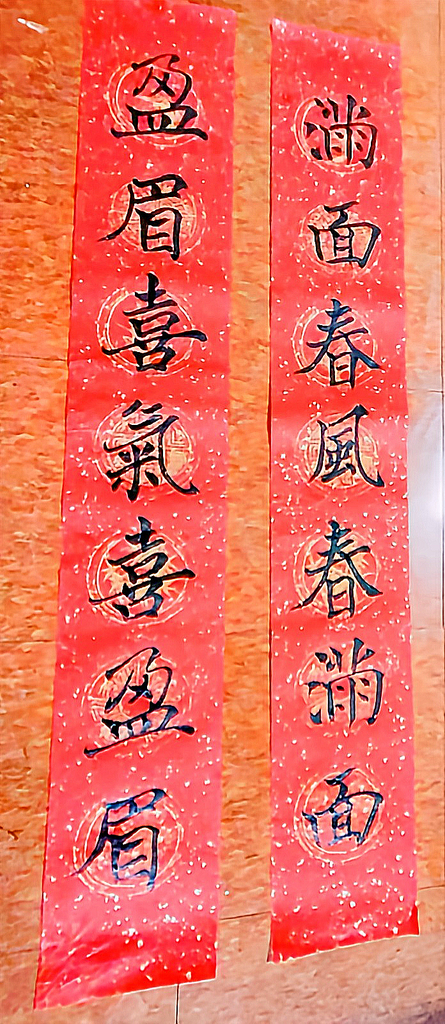 滿面春風春滿面
盈眉喜氣喜盈眉